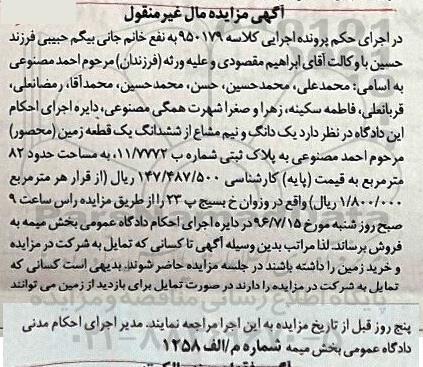 آگهی مزایده مال غیرمنقول
در اجرای حکم پرونده اجرایی کلاسه ۹۵۰۱۷۹ به نفع خانم جانی بیگم حبیبی فرزند
حسین با وکالت آقای ابراهیم مقصودی و علیه ورثه (فرزندان) مرحوم احمد مصنوعی
به اسامی: محمدعلی، محمدحسین، حسن، محمدحسین، محمدآقا، رمضانعلی،
قربانعلی، فاطمه سکینه، زهرا و صغرا شهرت همگی مصنوعی، دایره اجرای احکام
این دادگاه در نظر دارد یک دانگ و نیم مشاع از ششدانگ یک قطعه زمین (محصور)
مرحوم احمد مصنوعی به پلاک ثبتی شماره ب ۱۱/۷۷۷۲، به مساحت حدود ۸۲
مترمربع به قیمت (پایه) کارشناسی ۱۴۷/۴۸۷/۵۰۰ ریال (از قرار هر مترمربع
۱/۸۰۰/۰۰۰ ریال) واقع در وزوان خ بسیج پ ۲۳ را از طریق مزایده راس ساعت ۹
صبح روز شنبه مورخ ۹۶/۷/۱۵ در دایره اجرای احکام دادگاه عمومی بخش میمه به
فروش برساند. لذا مراتب بدین وسیله آگهی تا کسانی که تمایل به شرکت در مزایده
و خرید زمین را داشته باشند در جلسه مزایده حاضر شوند. بدیهی است کسانی که
تمایل به شرکت در مزایده را دارند در صورت تمایل برای بازدید از زمین می توانند
پنج روز قبل از تاریخ مزایده به این اجرا مراجعه نمایند. مدیر اجرای احکام مدنی
دادگاه عمومی بخش میمه شماره م/الف ۱۲۵۸